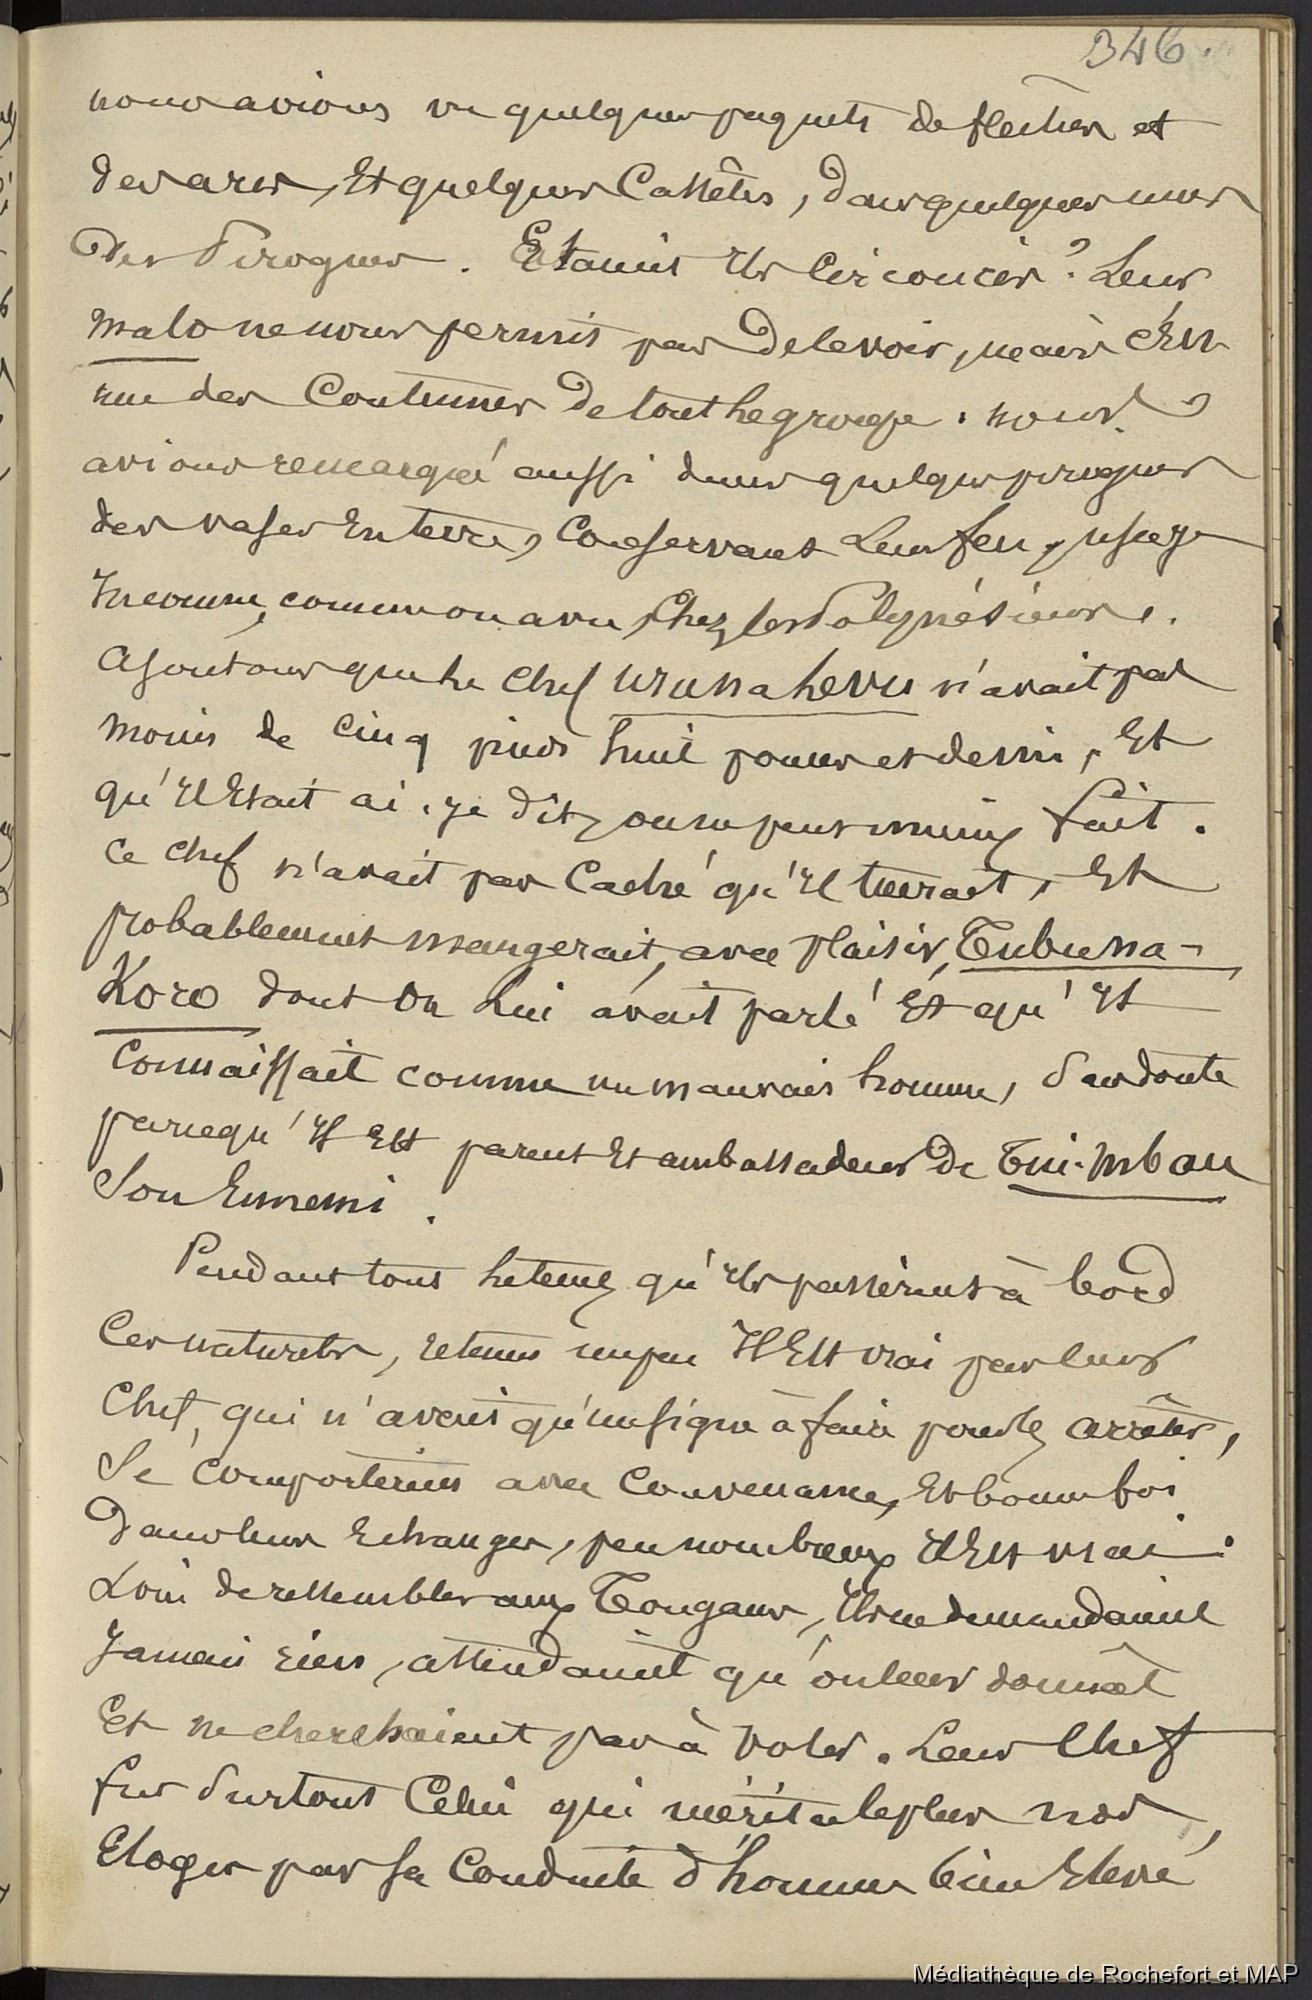 346.
nous avions vu quelques paquets de flèches et
des arcs, Et quelques Cassetêtes, dans quelques unes
Des Pirogues. Etaient Ils Circoncis? Leur
malo ne nous permit pas De le voir, mais c'Est
une des Coutumes De tout le groupe. nous
avions remarqué aussi dans quelques pirogues
des vases En terre, Conservant Leur feu, usage
Inconnu, comme on a vu, Chez les Polynésiens.
Ajoutons que le Chef urunahevu n'avait pas
moins de Cinq pieds huit pouces et demi, Et
qu'Il Etait ai. je dit, on ne peut mieux fait.
Ce Chef n'avait pas Caché qu'Il tuerait, Et
probablement mangerait, avec plaisir, Tubuna-
Koro dont On Lui avait parlé Et qu'Il
Connaissait comme un mauvais homme, Sans doute
parcequ'Il Est parent Et ambassadeur De Tui-Mbau
Son Ennemi.
Pendant tout le temps qu'Ils passèrent à bord
Ces naturels, retenus un peu Il Est vrai par leur
Chef, qui n'avait qu'un signe à faire pour les arrêter,
Se Comportèrent avec Convenance, Et bonne foi
Dans leurs Echanges, peu nombreux Il Est vrai.
Loin de ressembler aux Tongans, Ils ne demandaient
Jamais rien, attendaient qu'on leur donnât
Et ne cherchaient pas à voler. Leur Chef
fut Surtout Celui qui mérita le plus nos
Eloges par sa Conduite d'homme bien Elevé
Médiathèque de Rochefort et MAP